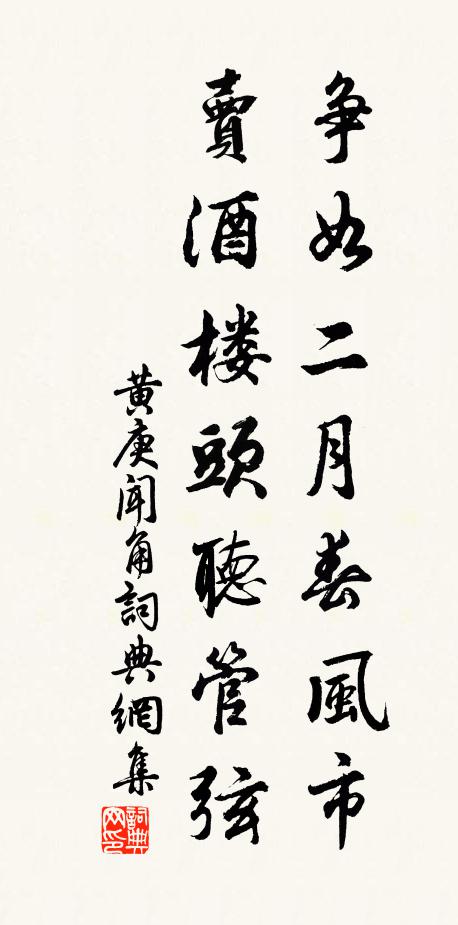 争如二月春風市
賣酒楼頭聽管弦
黄庚聞角詞典網集
詞典网印